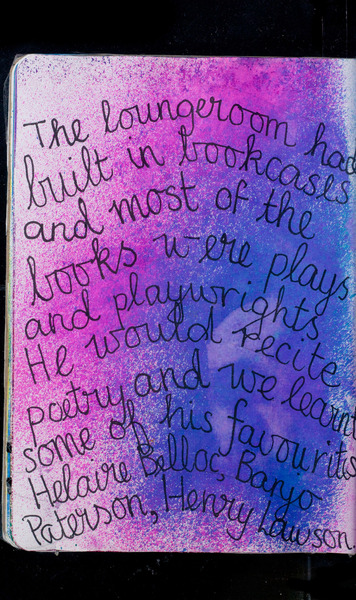 The loungeroom had
built in bookcases
and most of the
books were plays
and playwrights
He would recite
poetry and we learnt
some of his favourites
Helaire Belloc, Banjo
Paterson, Henry Lawson.